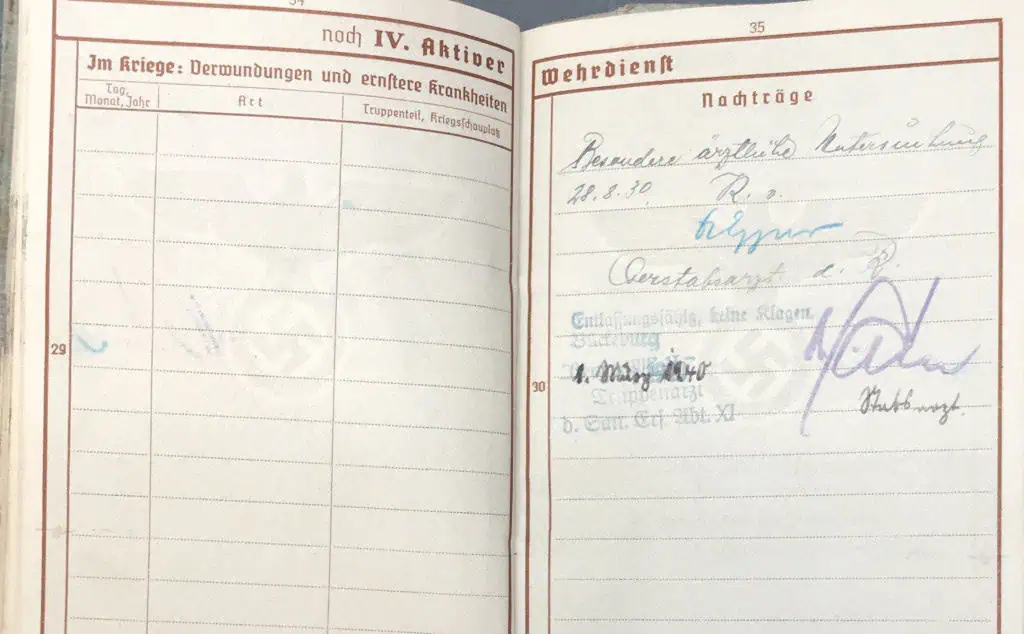 34
noch IV. Aktiver
Im Kriege: Verwundungen und ernstere Krankheiten
Tag,
Monat, Jahr
Art
Truppenteil, Kriegsschauplatz
29
35
Wehrdienst
Nachträge
Besondere ärztliche Untersuchung
28.8.30. R. v.
Oberstabsarzt d. R.
Entlassungsfähig, keine Klagen.
Bückeburg
1. März 1940
30
Truppenarzt
Stabsarzt.
d. San. Ers. Abt. XI